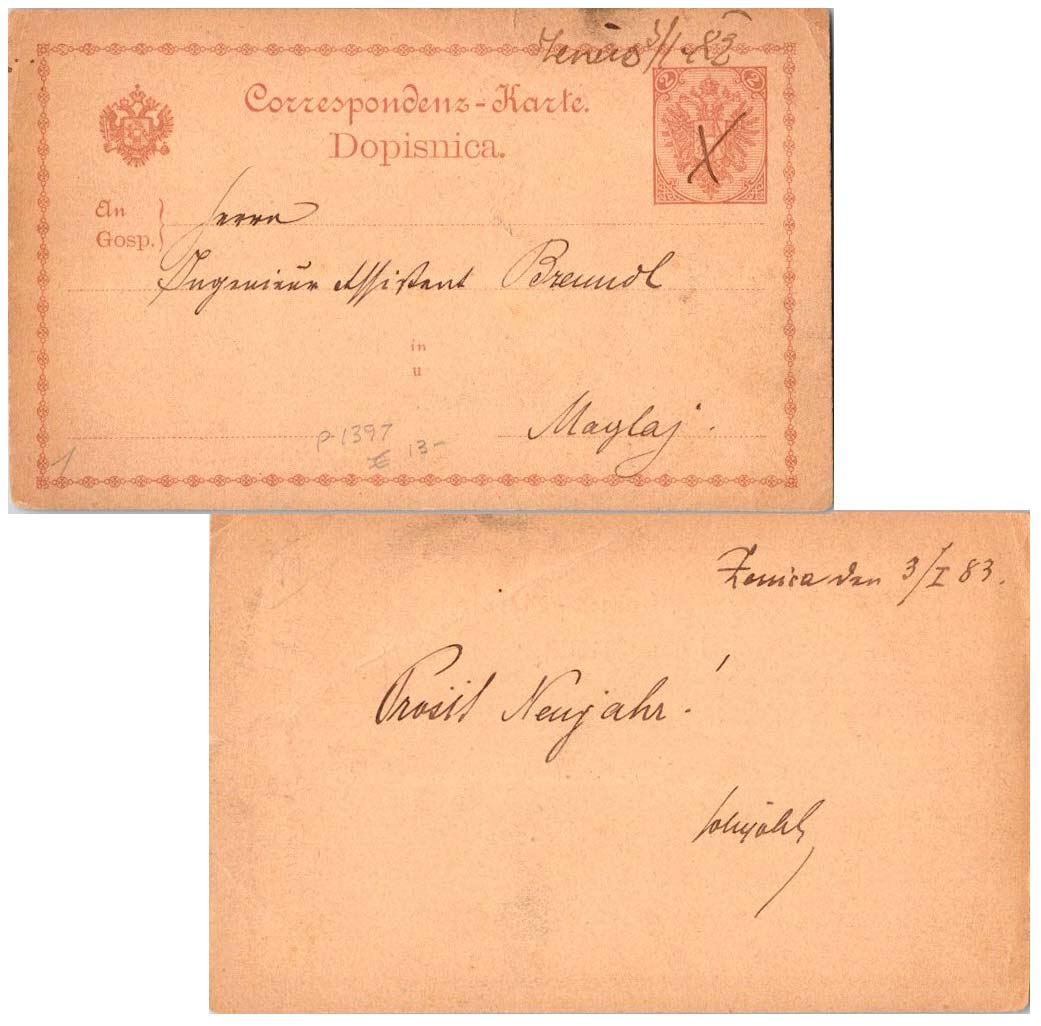 Zenica 3/1 83
2 2
Correspondenz-Karte.
Dopisnica.
An
Gosp.
Herrn
Ingenieur Assistent Breundl
in
u
Maglaj.
p. 1397
13-
1
Zenica den 3/I 83.
Prosit Neujahr!